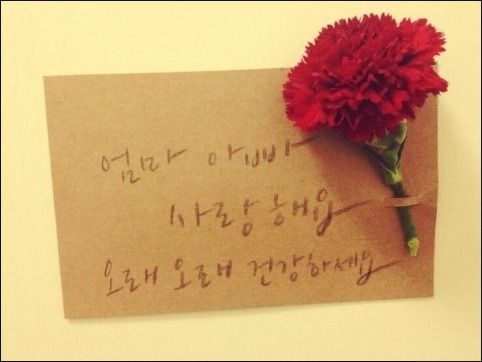 엄마 아빠
사랑해요
오래오래 건강하세요